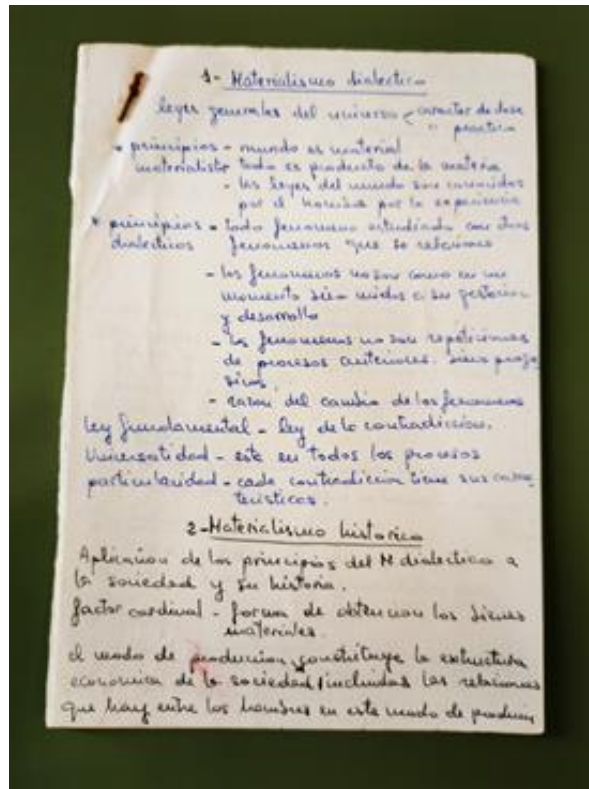 1- Materialismo dialectico
leyes generales del universo < caracter de clase
" practica
* principios - mundo es material
materialistas todo es producto de la materia
- las leyes del mundo son conocidas
por el hombre por la experiencia
* principios - todo fenomeno estudiado con otros
dialecticos fenomenos que se relacione
- los fenomenos no son como en un
momento sino unidos a su
y desarrollo
- los fenomenos no son repeticiones
de procesos anteriores. sino progre
sivos.
- razon del cambio de los fenomenos
ley fundamental - ley de la contradiccion.
Universalidad - esta en todos los procesos
particularidad - cada contradiccion tiene sus carac
teristicas.
2- Materialismo historico
Aplicacion de los principios del M dialectico a
la sociedad y su historia.
factor cardinal - forma de obtencion los bienes
materiales.
el modo de produccion constituye la estructura
economica de la sociedad/incluidas las relaciones
que hay entre los hombres en este modo de produccion